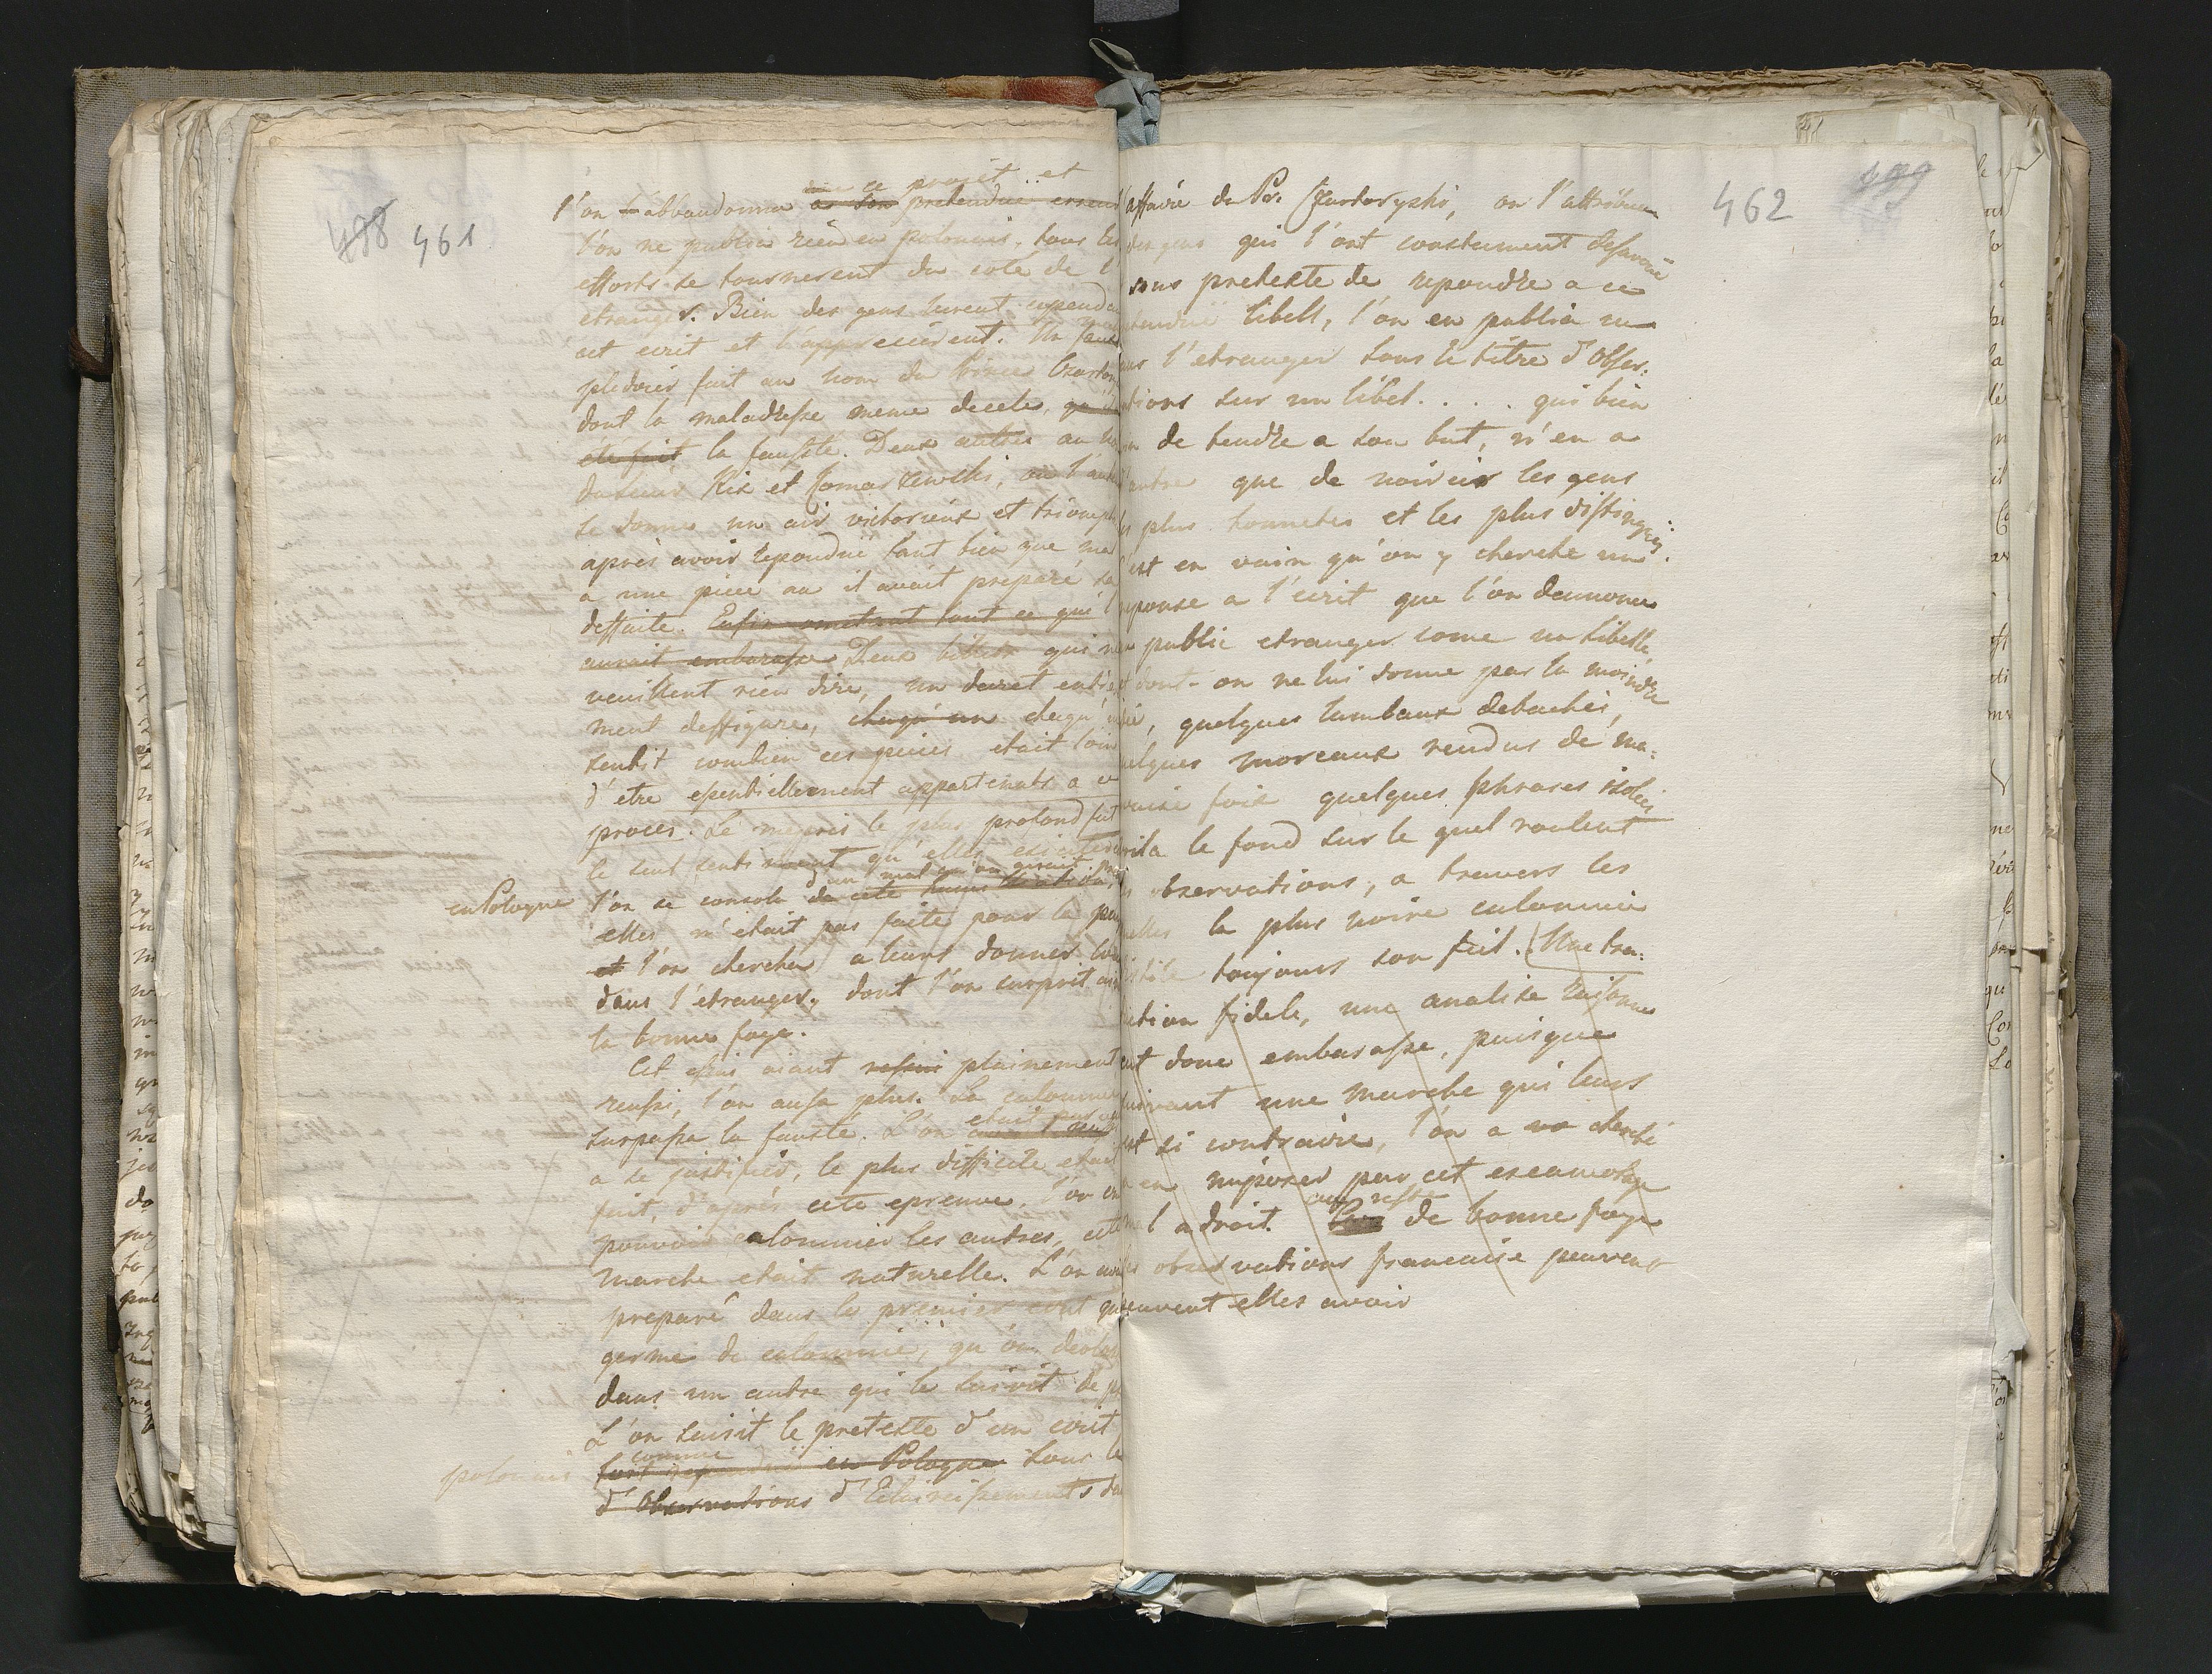 488 461
ce projet et
l'on abbandonna a son pretendue erreur
l'on ne publia rien en polonais, tous les
efforts se tournerent du coté de l'
etranger. Bien des gens lurent cependa
cet ecrit et l'apprecièrent. Un faux
pledoier fait au nom du Prince Czartor
dont la maladresse meme decele, qu'il
été fait la fausseté. Deux autres au no
du sieur Rix et Comarzewski, ou l'aute
se donne un air victorieux et triomph
après avoir repondue tant bien que ma
a une pièce ou il avait preparé sa
deffaite. Enfin omettant tout ce qui l'
aurait embarasse Deux billets qui ne
veuillent rien dire, un decret entie
ment deffigure, chaqu'un chaqu'
sentit combien ces pièces etait loin
d'etre essentiellement appartenants a ce
proces. Le mepris le plus profond fut
le seul sentiment qu'elles exciterent
en Pologne
l'on se consola de cete
elles n'etait pas faite pour le pai
et l'on chercha a leurs donner
dans l'etranger, dont l'on surprit ai
la bonne foye.
Cet essai aiant reussi plainement
reussi, l'on ausa plus. La calomnie
surpassa la fausté. L'on etait
a se justifier, le plus difficile etait
fait, d'après cete epreuve. l'on
pouvoir calomnier les autres, cete
marche etait naturelle. L'on avai
preparé dans le premier ecrit que
germe de calomnie, qu'on devlop
dans un autre qui le suivit de pr
L'on saisit le pretexte d'un ecrit
polonais
comme
fort repandue en Pologne sous le
d'Observations d'Eclaircissements da
462 489
l'affaire du Pce Czartoryski, on l'attribua
des gens qui l'ont constament desavoué
sous pretexte de repondre a ce
tendue libell, l'on en publia un
ans l'etranger sous le titre d'Obser:
vations sur un libel . . . . qui bien
n de tendre a son but, n'en a
d'autre que de noircir les gens
les plus honnetes et les plus distingués.
C'est en vain qu'on y cherche une
reponse a l'ecrit que l'on dennonce
au public etranger come un libelle
et dont on ne lui donne pas la moindre
idé, quelques lambaux detachés,
quelques morceaux rendus de ma:
vaise foix quelques phrases isolées
voila le fond sur le quel roulent
s observations, a travers les
quelles la plus noire calomnie
distile toujours son fiel. Une tra:
duction fidele, une analise raisonne
ut donc embarasse, puisque
suivant une marche qui leurs
est si contraire, l'on a va cherché
a en imposer par cet escamotage
l adroit. au reste de bonne foye
les observations francaise peuvent
peuvent elles avoir